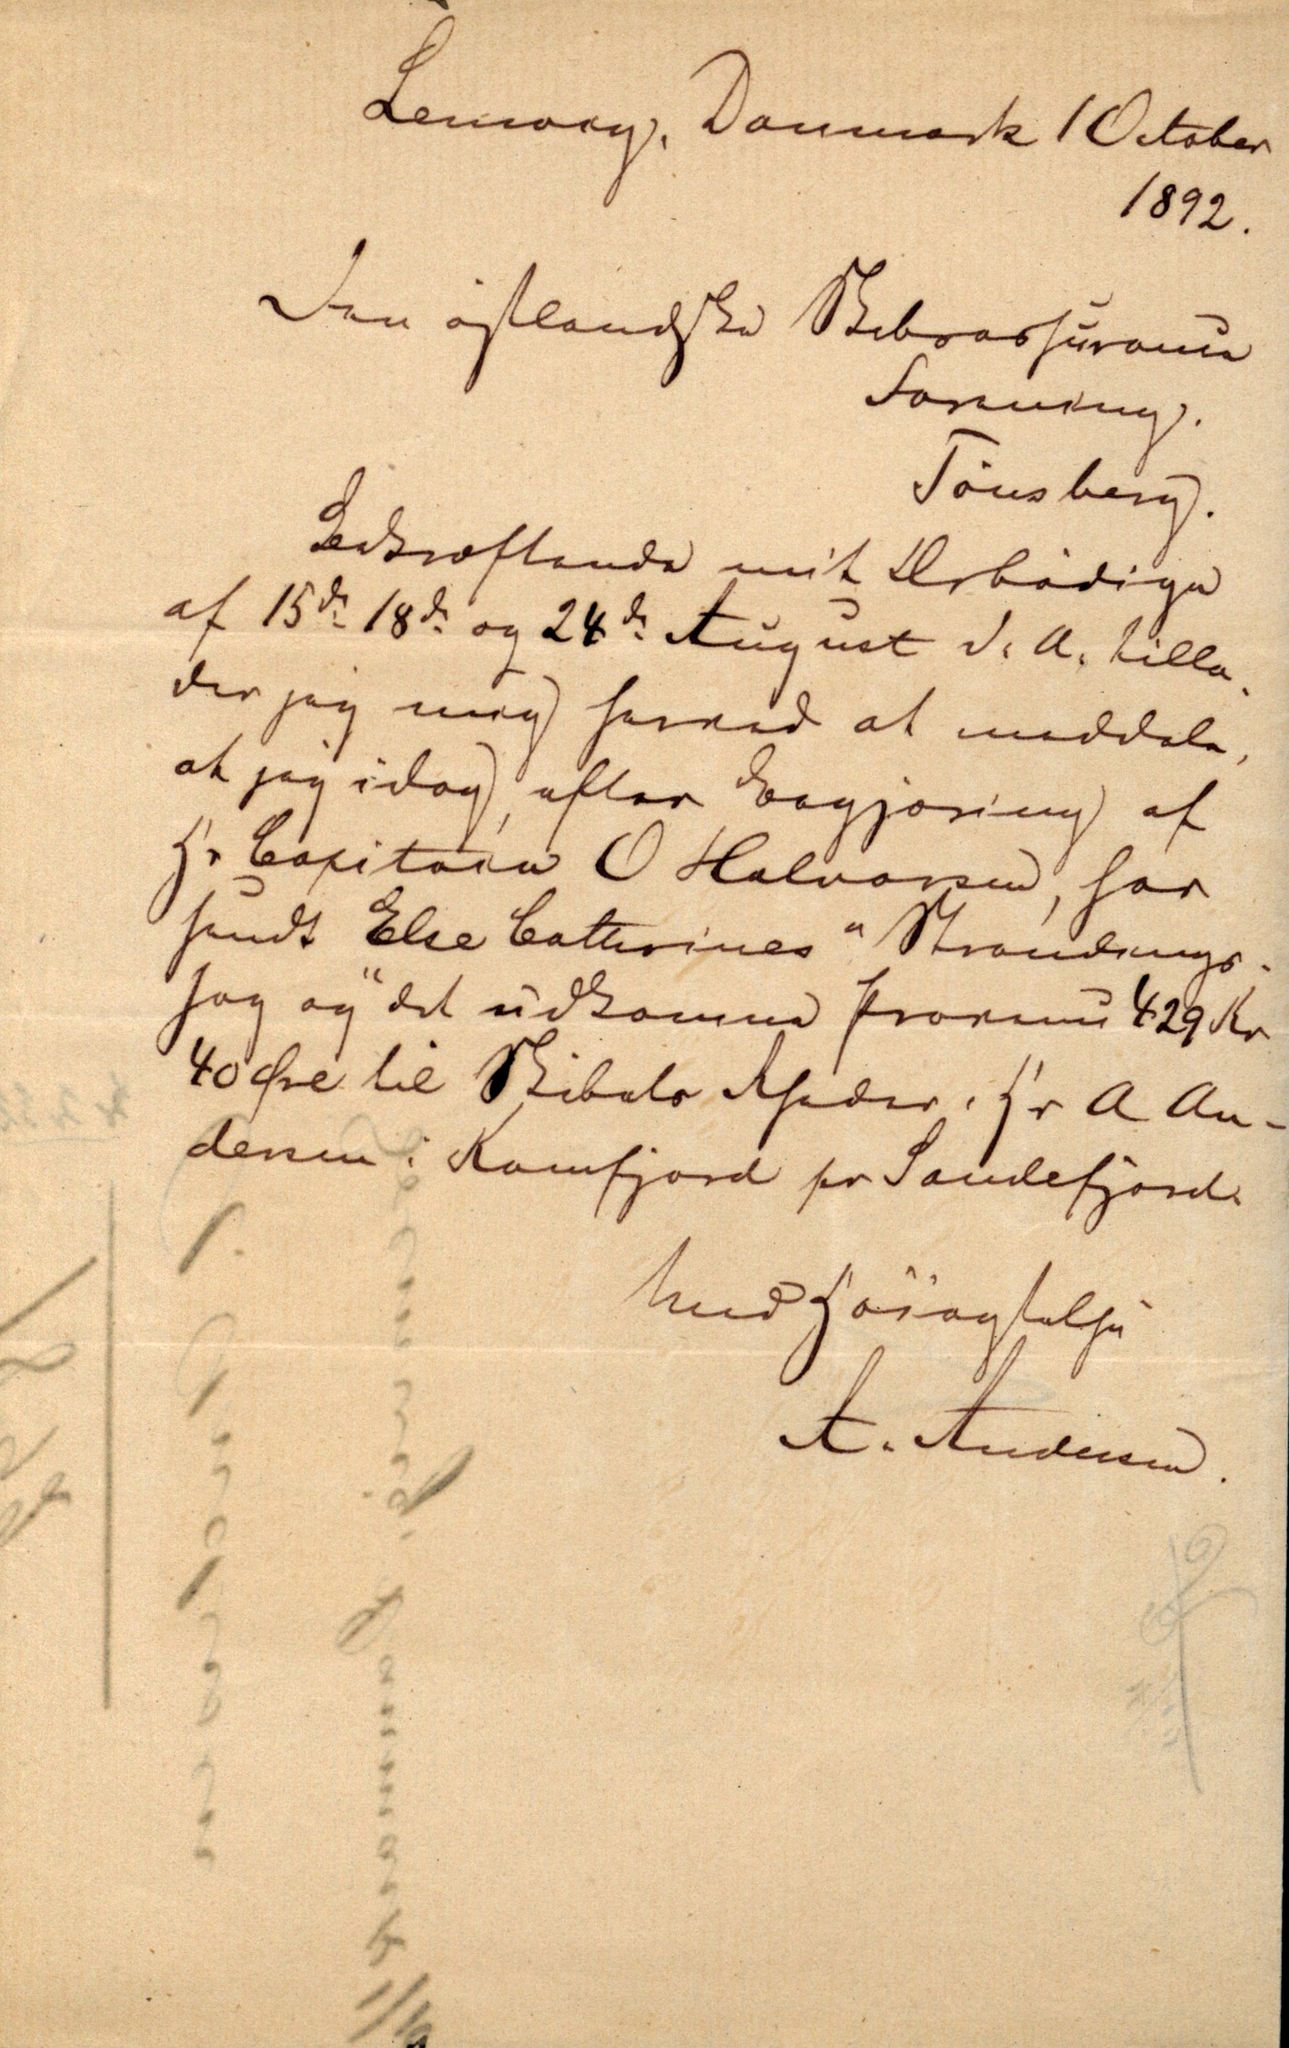 Lemvig, Danmark 1 October
1892.
Den østlandske Skibsassurance
Forening.
Tönsberg.
Bekræftende mit Ærbødige
af 15de 18de og 24de August d. A. tilla-
der jeg mig herved at meddele,
at jeg idag, efter Begjæring af
Hr Capitain O Halvorsen, har
sendt Else Cathrines" Strandings-
sag og det udkomne Provenu 429 Kr
40 Øre til Skibets Rheder, Hr A An-
dersen i Kamfjord pr Sandefjord.
Med Høiagtelse
A. Andersen.